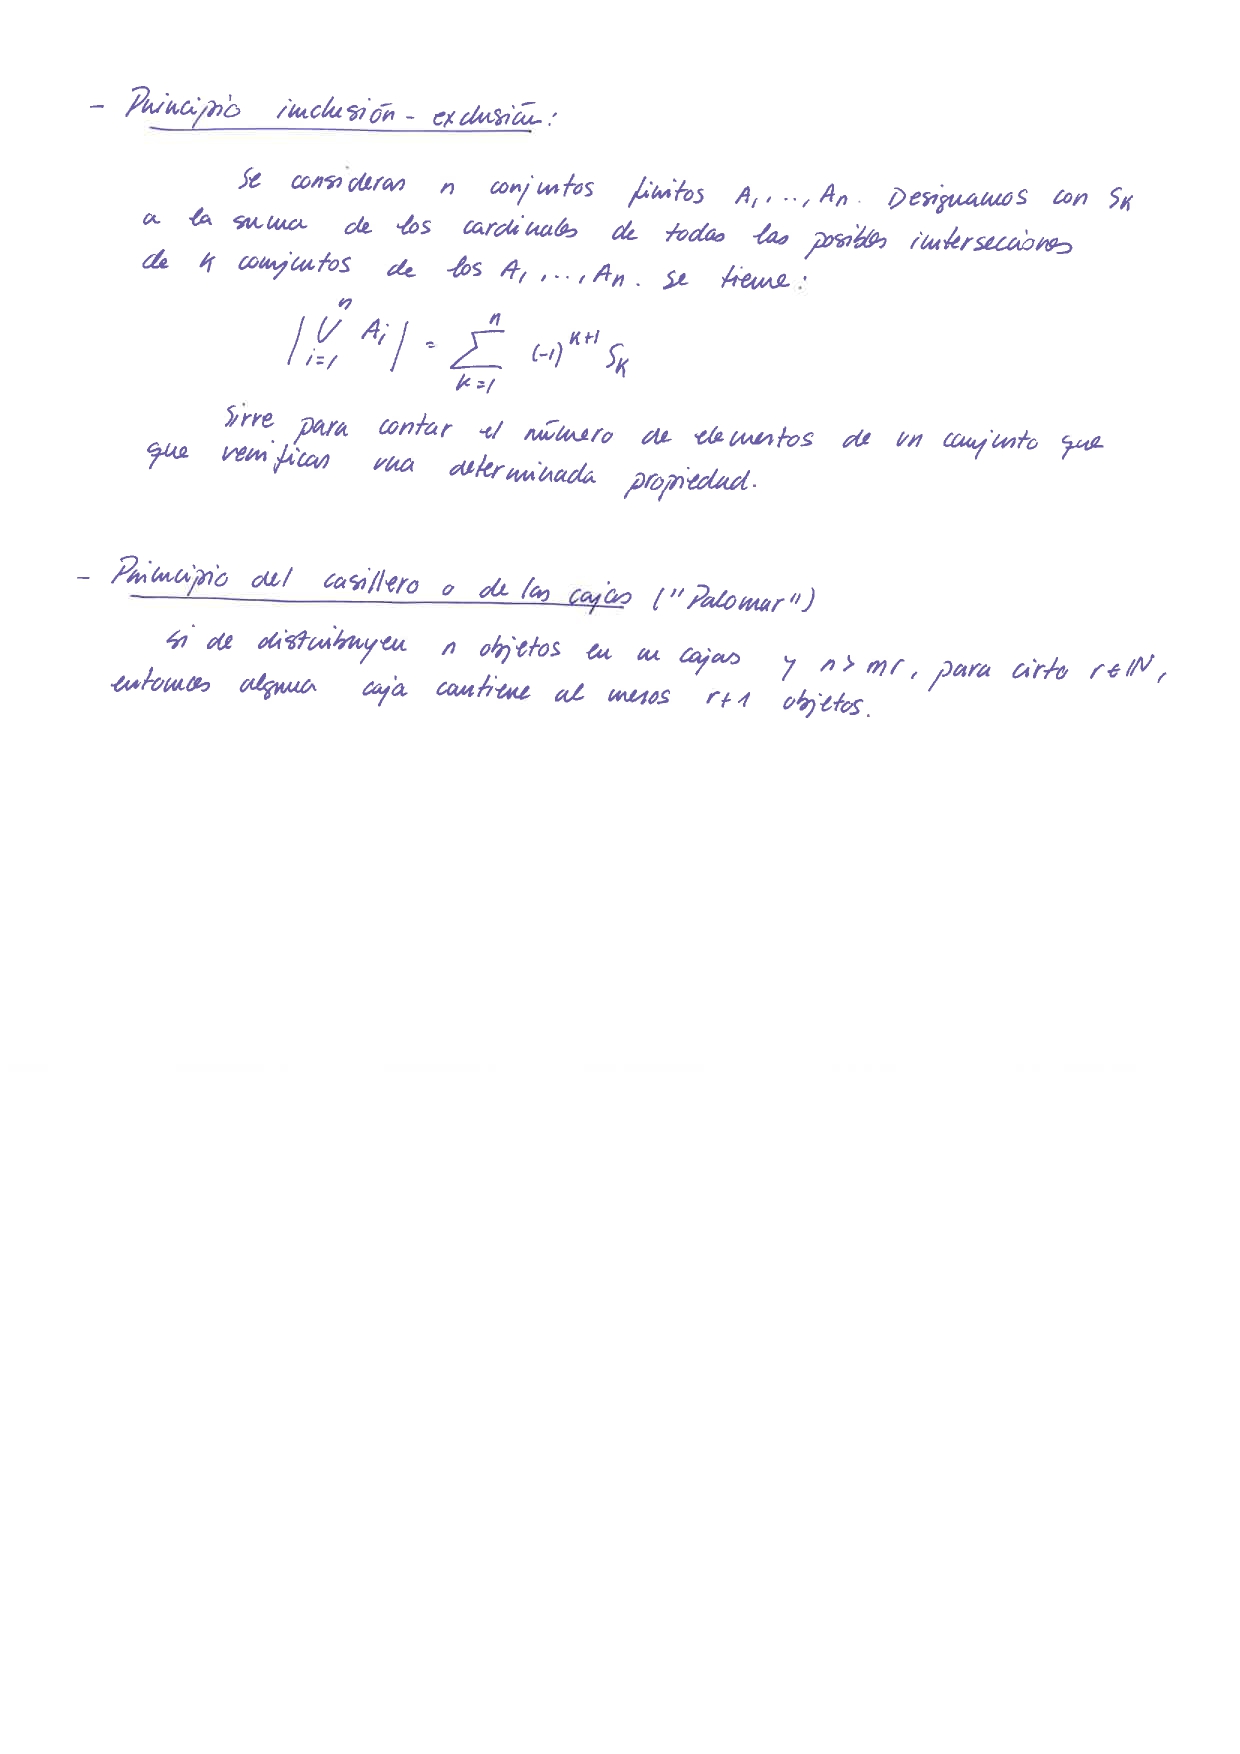 - Principio inclusión - exclusión:
Se consideran n conjuntos finitos A₁, ..., Aₙ. Designamos con Sₖ
a la suma de los cardinales de todas las posibles intersecciones
de k conjuntos de los A₁, ..., Aₙ. Se tiene:
|⋃ᵢ₌₁ⁿ Aᵢ| = ∑ₖ₌₁ⁿ (-1)ᵏ⁺¹ Sₖ
Sirve para contar el número de elementos de un conjunto que
que verifican una determinada propiedad.
- Principio del casillero o de las cajas ("Palomar")
Si de distribuyen n objetos en m cajas y n > mr, para cirto r ∈ ℕ,
entonces alguna caja contiene al menos r+1 objetos.